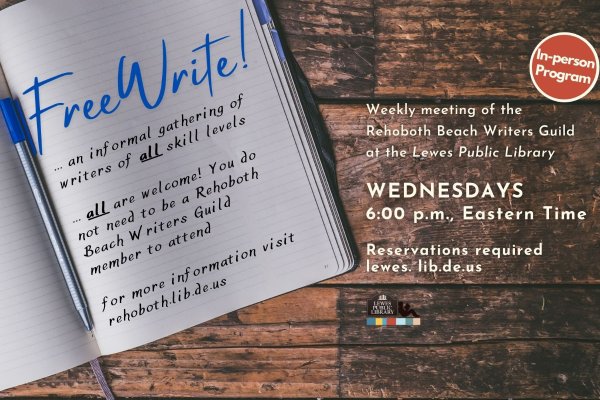 FreeWrite!
... an informal gathering of
writers of all skill levels
... all are welcome! You do
not need to be a Rehoboth
Beach Writers Guild
member to attend
for more information visit
rehoboth.lib.de.us
In-person
Program
Weekly meeting of the
Rehoboth Beach Writers Guild
at the Lewes Public Library
WEDNESDAYS
6:00 p.m., Eastern Time
Reservations required
lewes. lib.de.us
LEWES
PUBLIC
LIBRARY